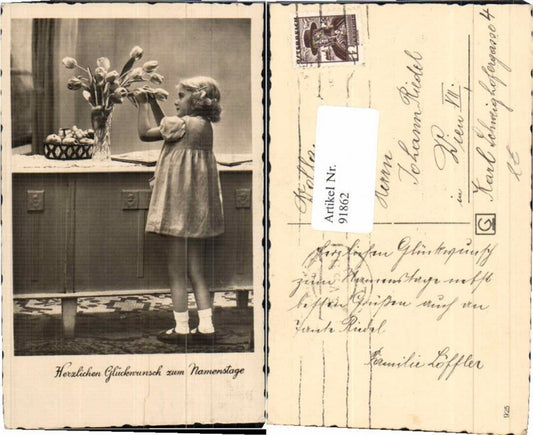 Herzlichen Glückwunsch zum Namenstage
ÖSTERREICH
Herrn
Johann Riedel
Wien VII.
in
Karl Schweighofergasse 4
Artikel Nr.
91862
G
Herzlichen Glückwunsch
zum Namenstage nebst
besten Grüßen auch an
Tante Riedel
Familie Löffler
925